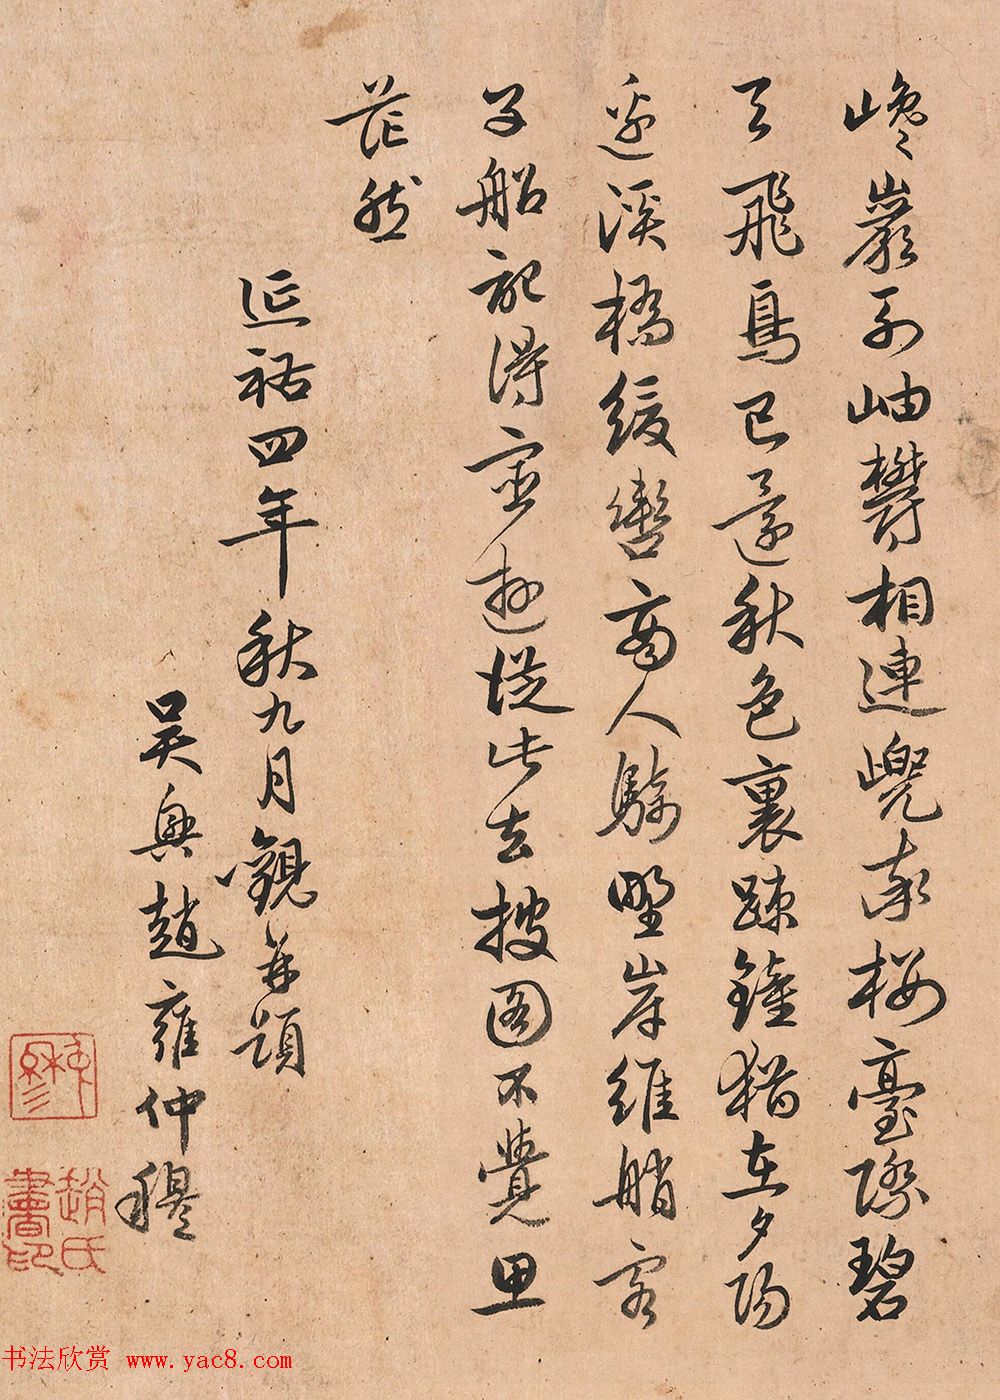 巉巖列岫鬱相連兜率樓臺際碧
天飛鳥已還秋色裏疎鐘猶在夕陽
邊溪橋緩轡高人騎野岸維艄客
子船記得宦遊從此去披圖不覺思
茫然
延祐四年秋九月觀并題
吳興趙雍仲穆
趙氏書印
书法欣赏 www.yac8.com